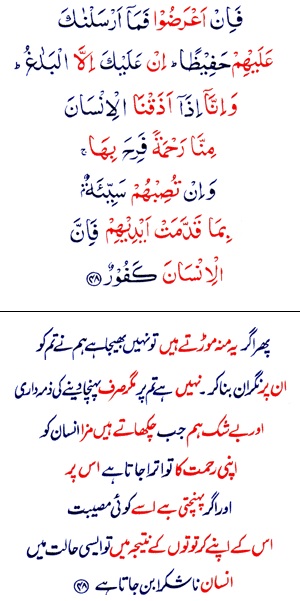 فَاِنْ اَعْرَضُوْا فَمَآ اَرْسَلْنٰكَ
عَلَيْهِمْ حَفِيْظًا ؕ اِنْ عَلَيْكَ اِلَّا الْبَلٰغُ ؕ
وَاِنَّاۤ اِذَاۤ اَذَقْنَا الْاِنْسَانَ
مِنَّا رَحْمَةً فَرِحَ بِهَا ۚ
وَاِنْ تُصِبْهُمْ سَيِّئَةٌۢ
بِمَا قَدَّمَتْ اَيْدِيْهِمْ فَاِنَّ
الْاِنْسَانَ كَفُوْرٌ ﴿۴۸﴾
پھر اگر یہ منہ موڑتے ہیں تو نہیں بھیجا ہے ہم نے تم کو
ان پر نگران بنا کر۔ نہیں ہے تم پر مگر صرف پہنچا دینے کی ذمہ داری
اور بے شک ہم جب چکھاتے ہیں مزا انسان کو
اپنی رحمت کا تو اترا جاتا ہے اس پر
اور اگر پہنچتی ہے اسے کوئی مصیبت
اس کے اپنے کرتوتوں کے نتیجہ میں تو ایسی حالت میں
انسان ناشکرا بن جاتا ہے ﴿۴۸﴾